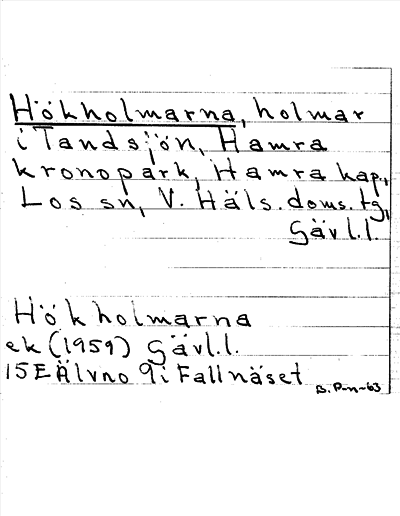 Hökholmarna, holmar
i Tandsjön, Hamra
kronopark, Hamra kap.,
Los sn, V. Häls. doms. tg,
Gävl.l.
Hökholmarna
ek (1959) Gävl.l.
15E Älvno 9i Fallnäset
B. P-n-63